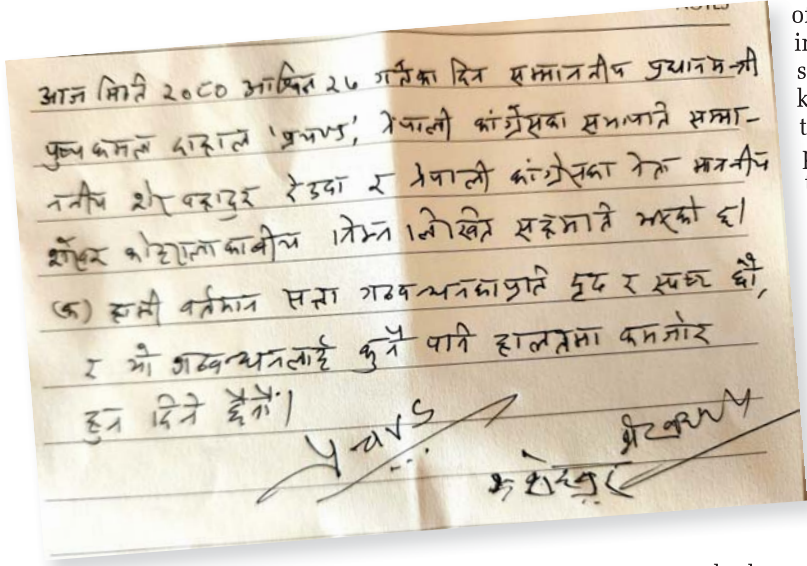 NOTES
आज मिति २०८० आश्विन २६ गतेका दिन सम्माननीय प्रधानमन्त्री
पुष्प कमल दाहाल 'प्रचण्ड', नेपाली कांग्रेसका सभापति सम्मा-
ननीय शेर बहादुर देउवा र नेपाली कांग्रेसका नेता माननीय
शेखर कोइरालाका बीच निम्न लिखित सहमति भएको छ।
(क) हामी वर्तमान सत्ता गठबन्धनका प्रति दृढ र स्पष्ट छौं,
र यो गठबन्धनलाई कुनै पनि हालतमा कमजोर
हुन दिने छैनौं।
प्रचण्ड